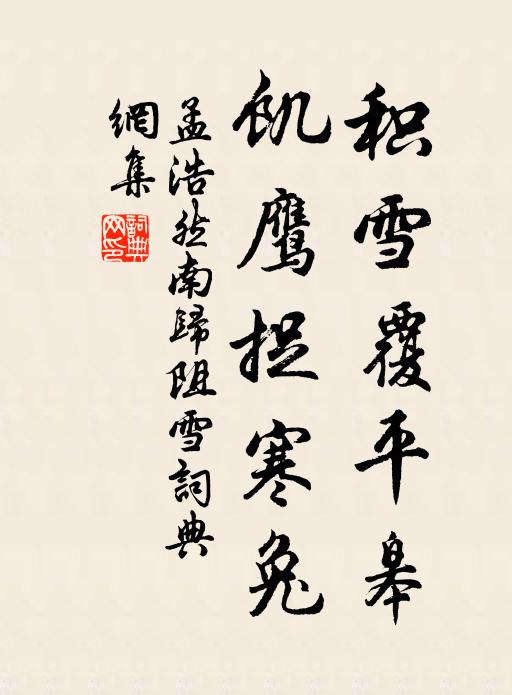 积雪覆平皋
飢鹰捉寒兔
孟浩然南歸阻雪詞典
網集
詞典网印